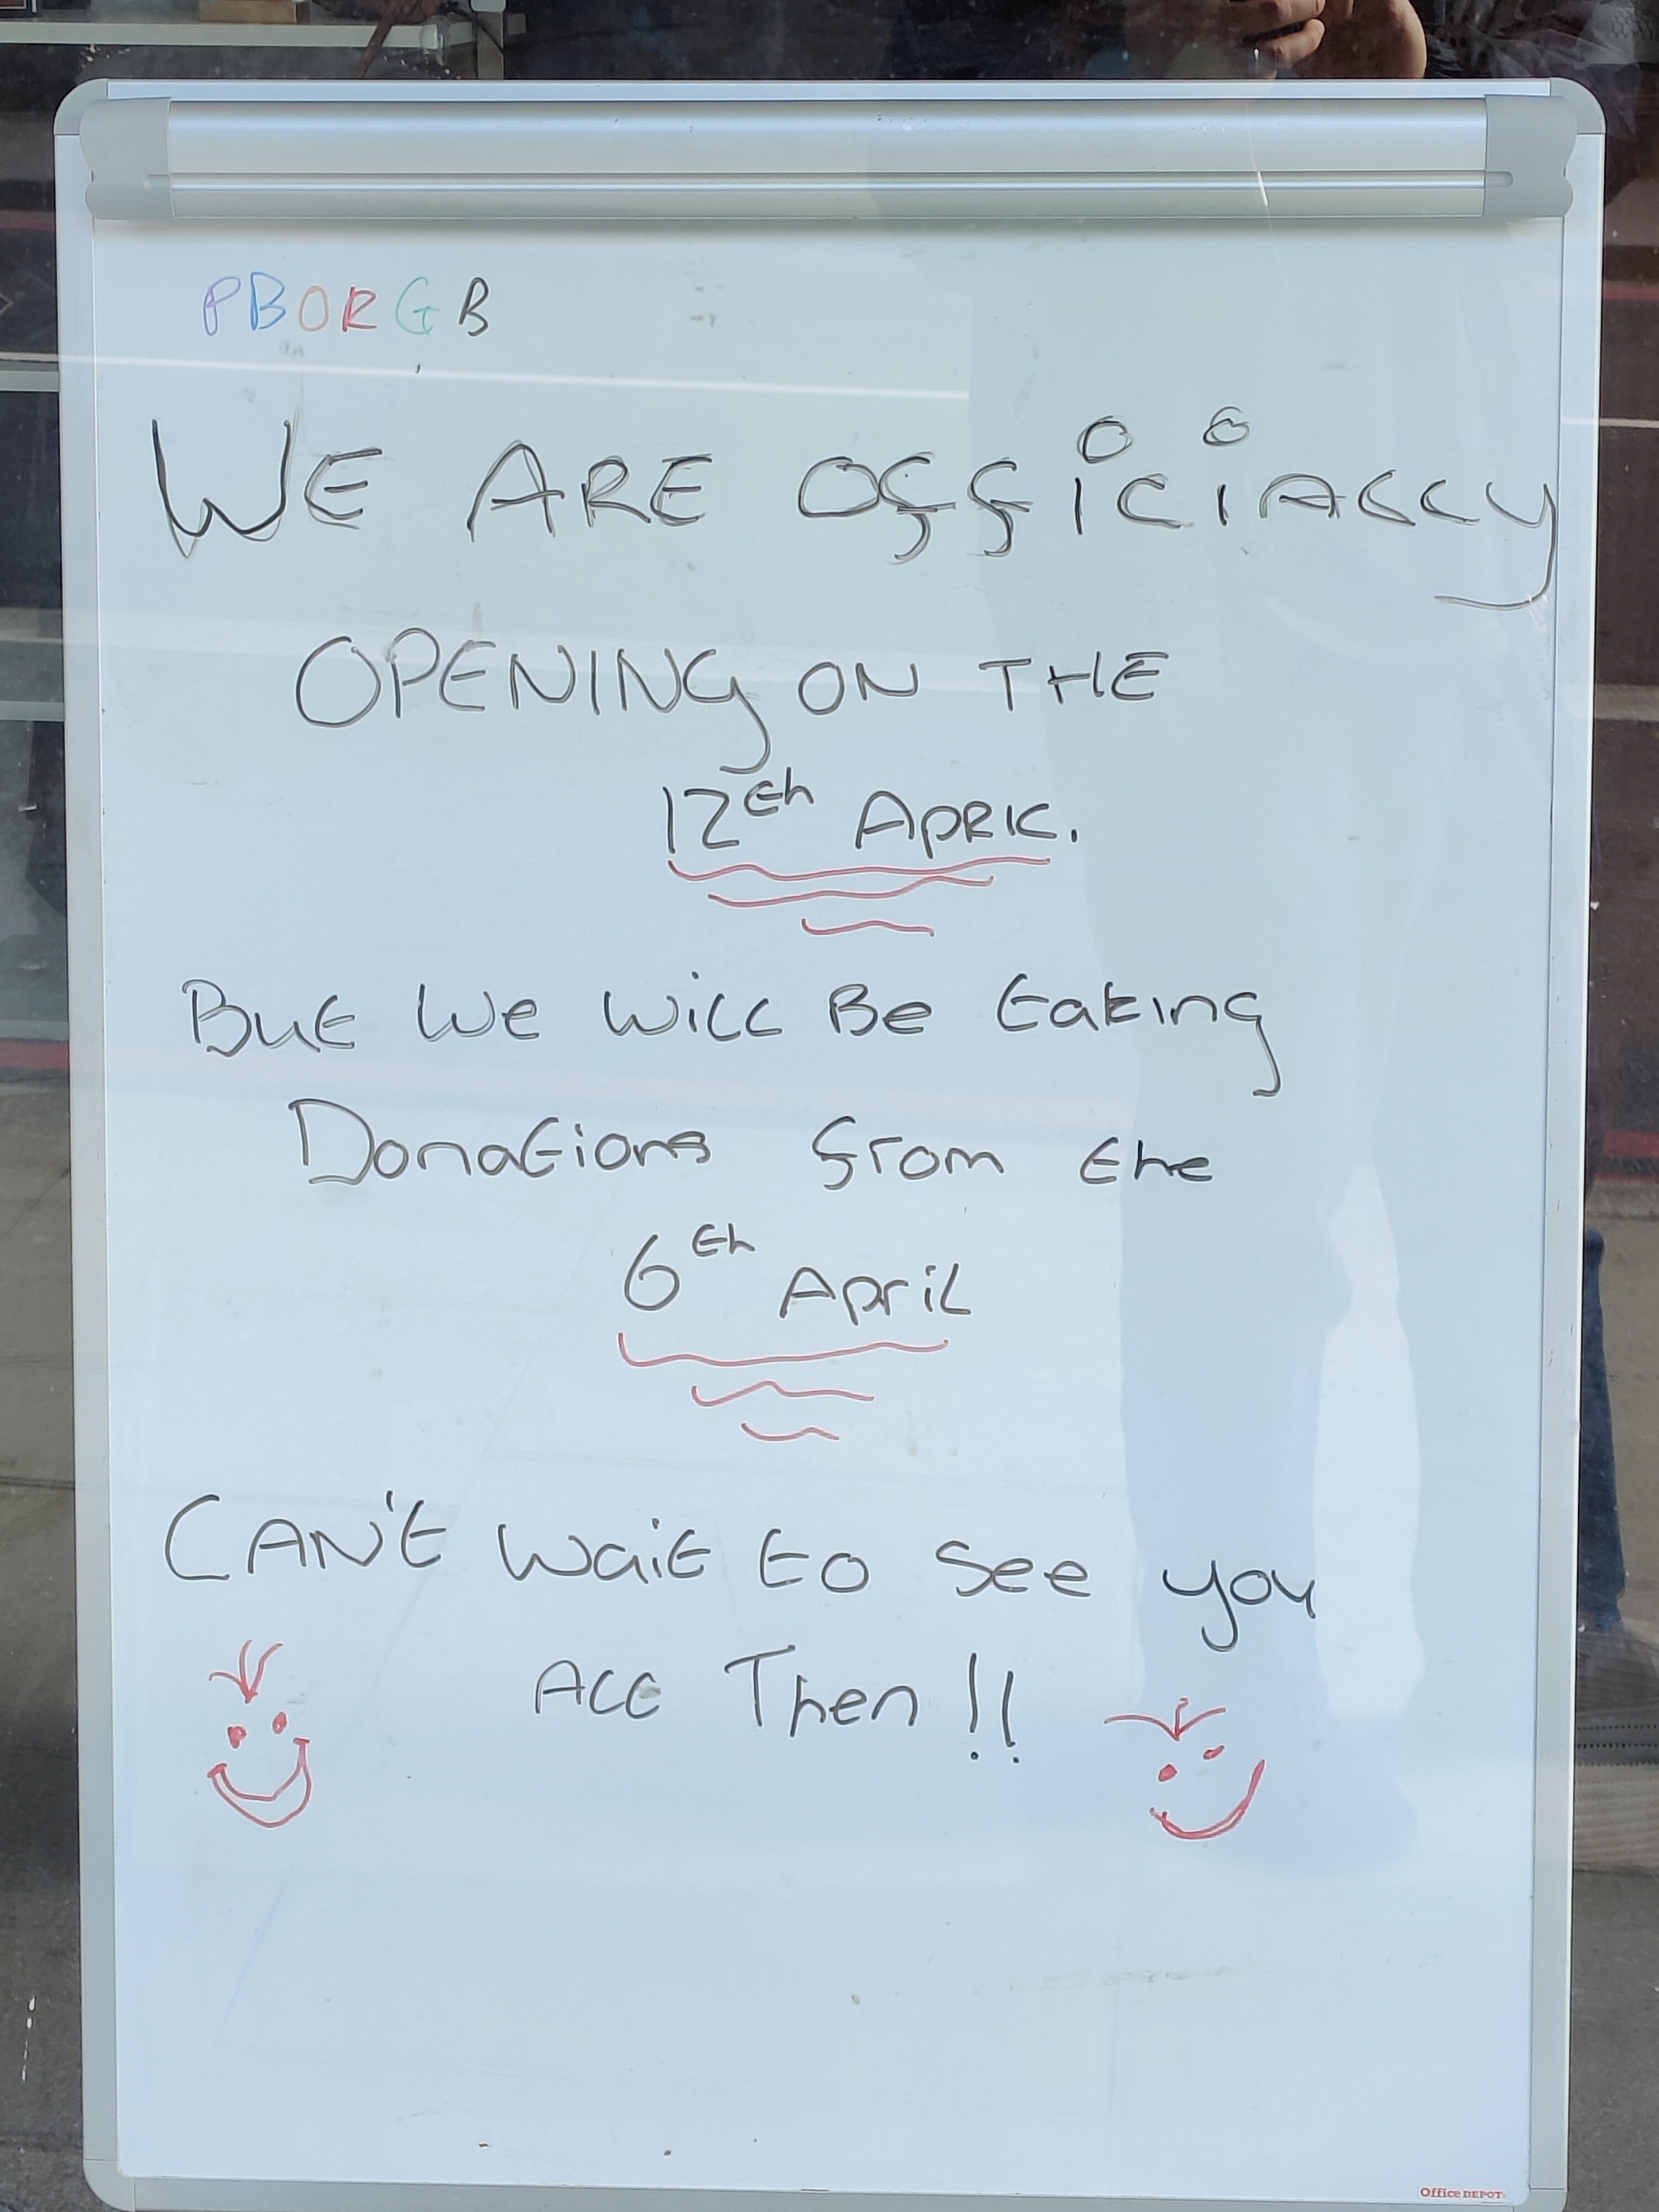 PBORGB
WE ARE OFFiCiALLY
OPENING ON THE
12th APRIL.
But We Will Be taking
Donations from the
6th April
CAN't Wait to See you
ALL Then!!
Office DEPOT